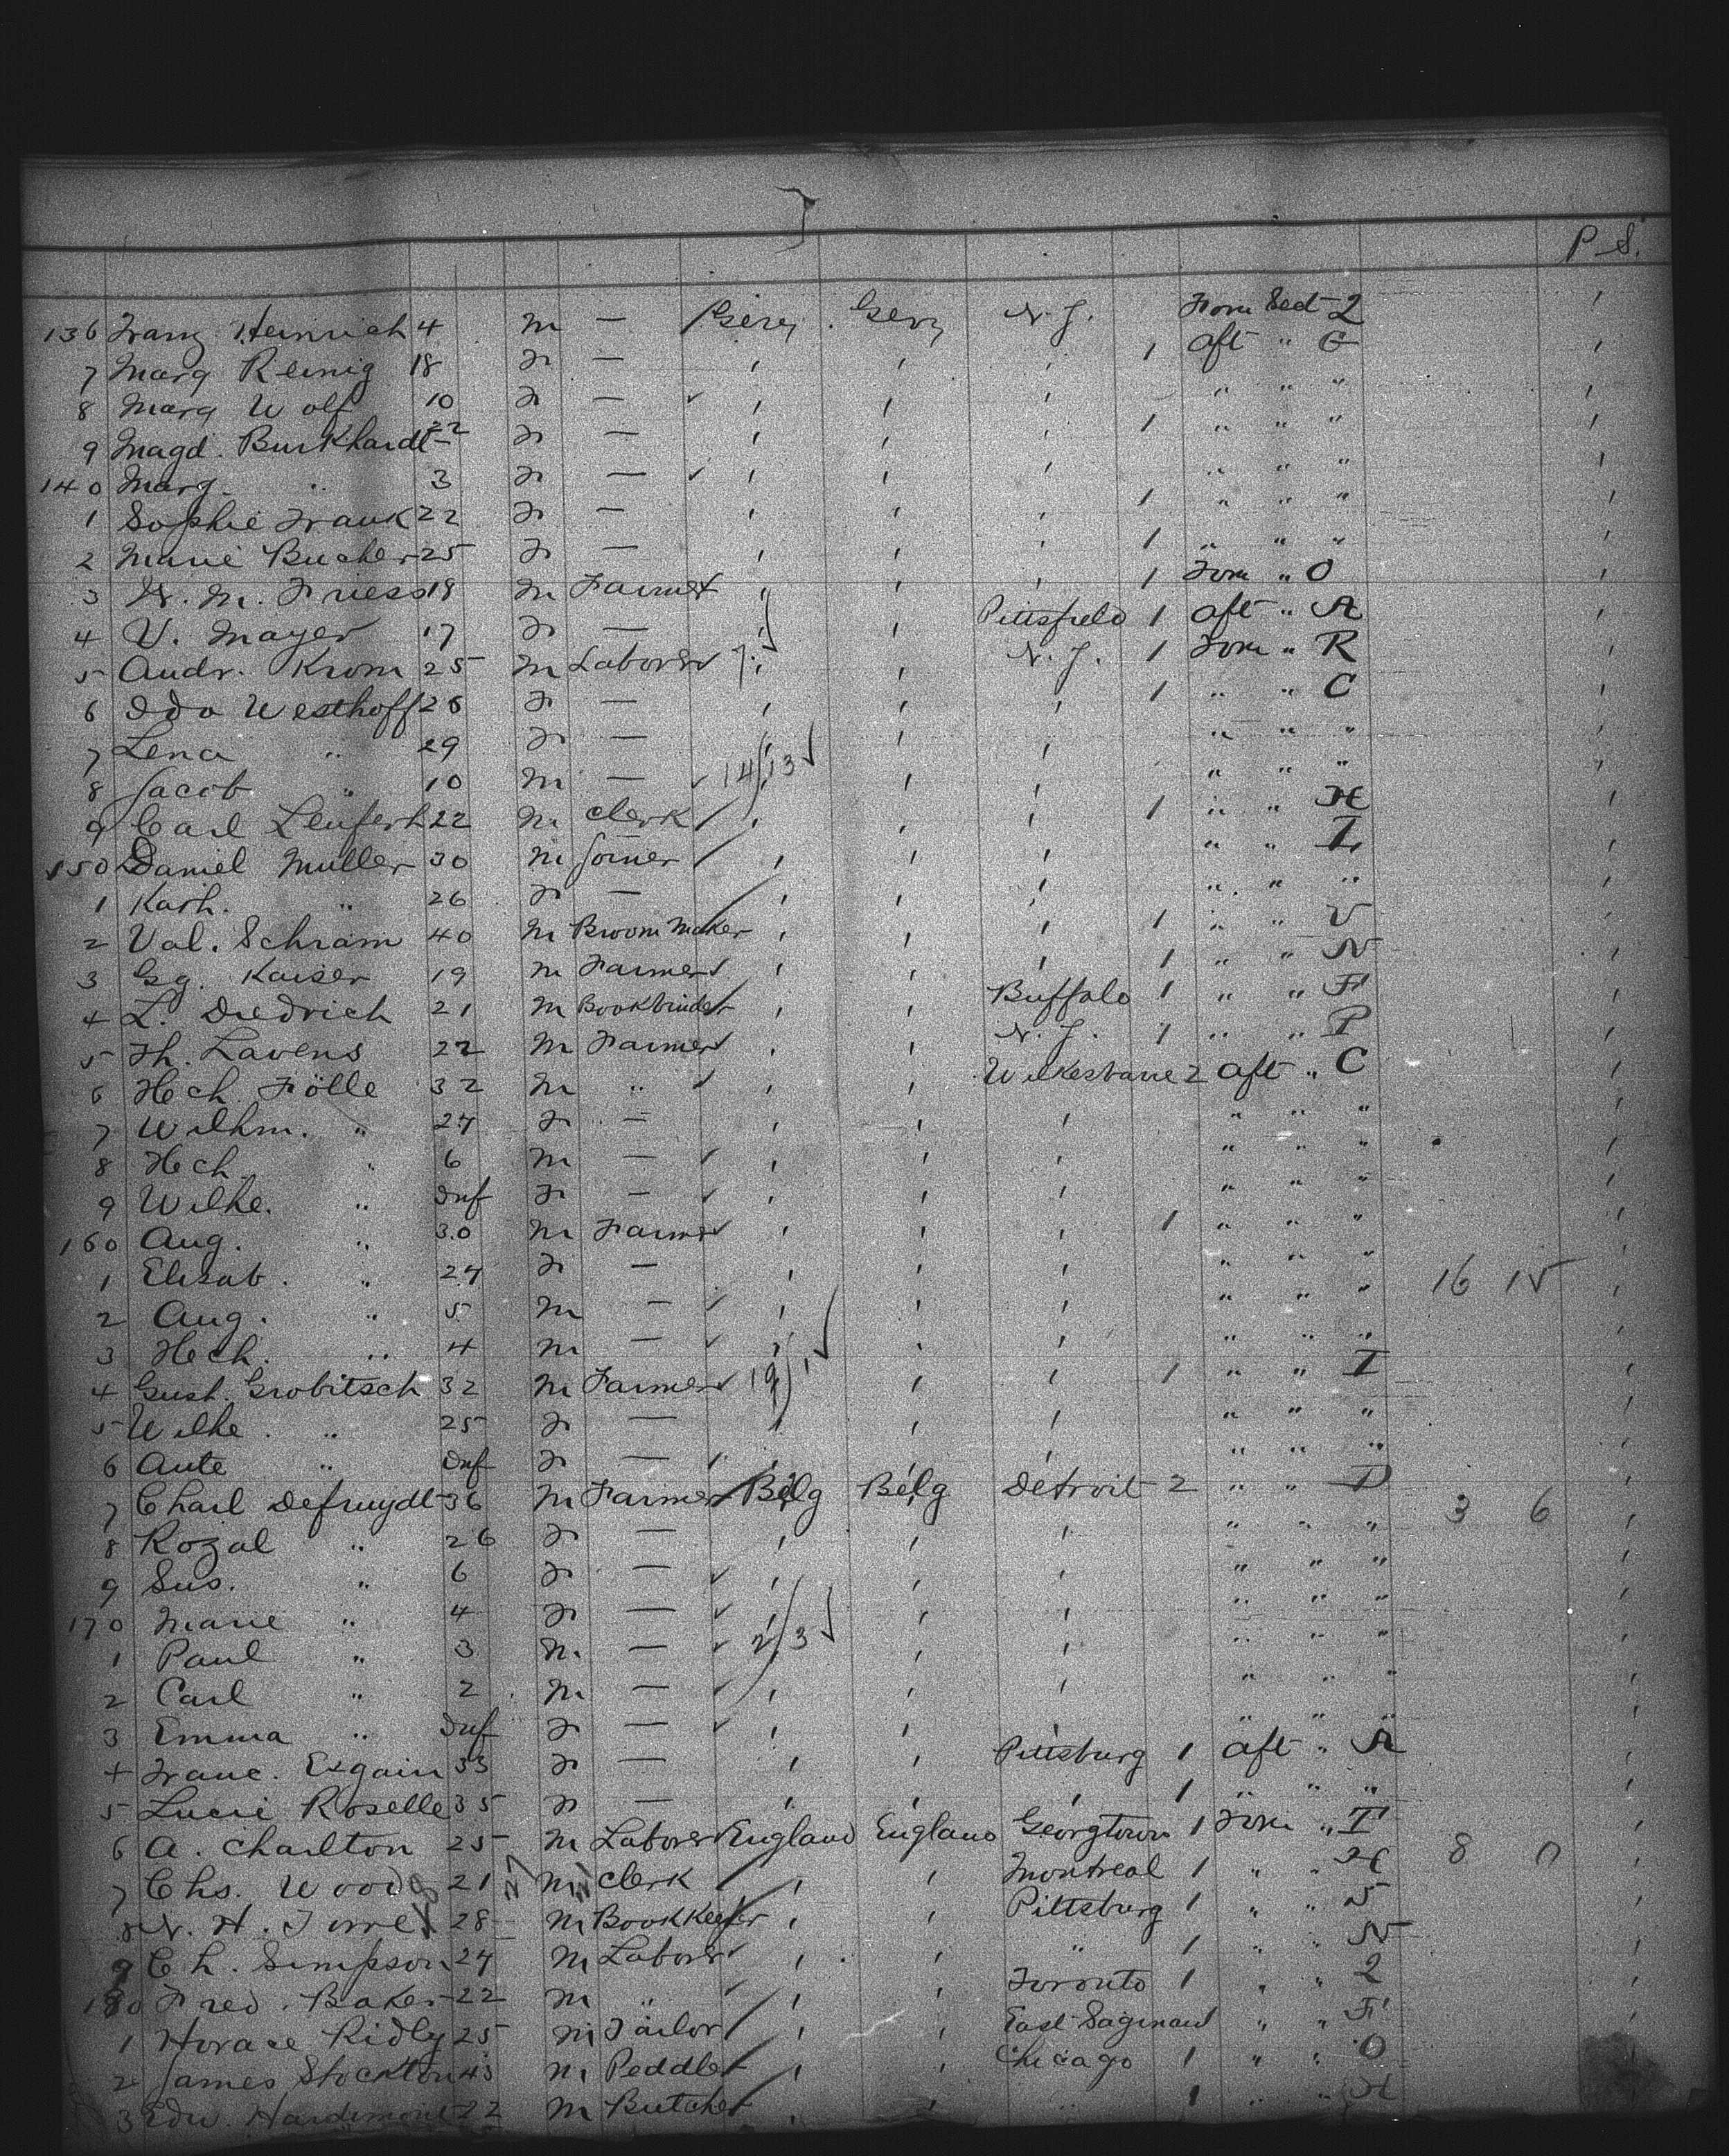 P. S.
136 Franz Heinrich 4 m — Gery Gery N. J. Forw Sect 2
7 Marg Reinig 18 F — 1 aft " G
8 Marg Wolf 10 F — " " "
9 Magd. Burkhardt 22 F — 1 " " "
140 Marg. " 3 F — " " "
1 Sophie Frank 22 F — 1 " " "
2 Marie Bucher 25 F — 1 " " "
3 W. M. Friess 18 m Farmer 1 Forw " O
4 V. Mayer 17 F — Pittsfield 1 aft " A
5 Andr. Krom 25 m Laborer N. J. 1 Forw " R
6 Ida Westhoff 26 F — 1 " " C
7 Lena " 29 F — " " "
8 Jacob " 10 m — 14/13 " " "
9 Carl Leuferh 22 m Clerk 1 " " H
150 Daniel Muller 30 m Joiner " " I
1 Kath. " 26 F — " " "
2 Val. Schram 40 m Broom Maker 1 " " V
3 Gg. Kaiser 19 m Farmer 1 " " N
4 L. Diedrich 21 m Bookbinder Buffalo 1 " " F
5 Th. Lavens 22 m Farmer N. J. 1 " " P
6 Hch. Fölle 32 m " Wilkesbarre 2 aft " C
7 Wilhm. " 27 F — " " "
8 Hch. " 6 m — " " "
9 Wilhe. " Inf F — " " "
160 Aug. " 30 m Farmer 1 " " "
1 Elisab. " 27 F — " " " 16 15
2 Aug. " 5 m — " " "
3 Hch. " 4 m — " " "
4 Gust. Grobitsch 32 m Farmer 19/1 1 " " I
5 Wilhe. " 25 F — " " "
6 Ante " Inf F — " " "
7 Charl Defruydt 36 m Farmer Belg Belg Detroit 2 " " D 3 6
8 Rozal " 26 F — " " "
9 Sus. " 6 F — " " "
170 Marie " 4 F — " " "
1 Paul " 3 m — 2/3 " " "
2 Carl " 2 m — " " "
3 Emma " Inf F — " " "
4 Franc. Exgain 33 F — Pittsburg 1 aft " A
5 Lucie Roselle 35 F — 1 " " "
6 A. Charlton 25 m Laborer England England Georgtown 1 Forw " I 8 0
7 Chs. Woods 21 m Clerk Montreal 1 " " H
8 N. H. Torrel 28 m Bookkeeper Pittsburg 1 " " S
9 Ch. Simpson 27 m Laborer " 1 " " N
180 Fred. Baker 22 m " Toronto 1 " " 2
1 Horace Ridly 25 m Tailor East Saginaw " " F
2 James Stockton 43 m Peddler Chicago 1 " " O
3 Edw. Hardimont 22 m Butcher " 1 " " H